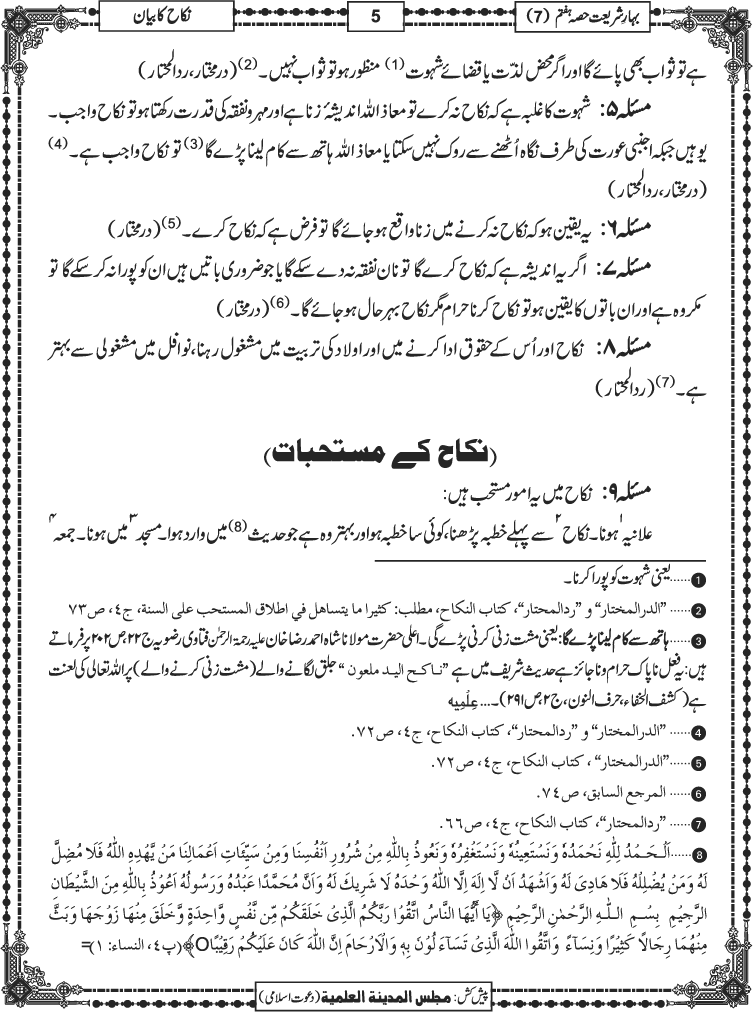 بہارِ شریعت حصہ ہفتم (7)
5
نکاح کا بیان
ہے تو ثواب بھی پائے گا اور اگر محض لذّت یا قضائے شہوت (1) منظور ہو تو ثواب نہیں۔(2) (درمختار، ردالمحتار)
مسئلہ ۵: شہوت کا غلبہ ہے کہ نکاح نہ کرے تو معاذ اللہ اندیشۂ زنا ہے اور مہر و نفقہ کی قدرت رکھتا ہو تو نکاح واجب۔
یوہیں جبکہ اجنبی عورت کی طرف نگاہ اُٹھنے سے روک نہیں سکتا یا معاذ اللہ ہاتھ سے کام لینا پڑے گا (3) تو نکاح واجب ہے۔(4)
(درمختار، ردالمحتار)
مسئلہ ۶: یہ یقین ہو کہ نکاح نہ کرنے میں زنا واقع ہو جائے گا تو فرض ہے کہ نکاح کرے۔(5) (درمختار)
مسئلہ ۷: اگر یہ اندیشہ ہے کہ نکاح کرے گا تو نان نفقہ نہ دے سکے گا یا جو ضروری باتیں ہیں ان کو پورا نہ کر سکے گا تو
مکروہ ہے اور ان باتوں کا یقین ہو تو نکاح کرنا حرام مگر نکاح بہرحال ہو جائے گا۔(6) (درمختار)
مسئلہ ۸: نکاح اور اُس کے حقوق ادا کرنے میں اور اولاد کی تربیت میں مشغول رہنا، نوافل میں مشغولی سے بہتر
ہے۔(7) (ردالمحتار)
(نکاح کے مستحبات)
مسئلہ ۹: نکاح میں یہ امور مستحب ہیں:
علانیہ ۱ ہونا۔ نکاح ۲ سے پہلے خطبہ پڑھنا، کوئی سا خطبہ ہو اور بہتر وہ ہے جو حدیث (8) میں وارد ہوا۔ مسجد ۳ میں ہونا۔ جمعہ ۴
1......یعنی شہوت کو پورا کرنا۔
2......"الدرالمختار" و "ردالمحتار"، کتاب النکاح، مطلب: کثیرا ما یتساهل في اطلاق المستحب علی السنة، ج٤، ص٧٣
3......ہاتھ سے کام لینا پڑے گا: یعنی مشت زنی کرنی پڑے گی۔ اعلیٰ حضرت مولانا شاہ احمد رضا خان علیہ رحمۃ الرحمٰن فتاوی رضویہ ج۲۲، ص۲۰۲ پر فرماتے
ہیں: یہ فعل ناپاک حرام و ناجائز ہے حدیث شریف میں ہے "ناکح الید ملعون" جلق لگانے والے (مشت زنی کرنے والے) پر اللہ تعالیٰ کی لعنت
ہے (کشف الخفاء، حرف النون، ج۲، ص۲۹۱)۔... عِلْمِیه
4......"الدرالمختار" و "ردالمحتار"، کتاب النکاح، ج٤، ص٧٢.
5......"الدرالمختار" ، کتاب النکاح، ج٤، ص٧٢.
6...... المرجع السابق، ص٧٤.
7......"ردالمحتار"، کتاب النکاح، ج٤، ص٦٦.
8......اَلْـحَـمْـدُ لِلّٰهِ نَحْمَدُهٗ وَنَسْتَعِیْنُهٗ وَنَسْتَغْفِرُهٗ وَنَعُوذُ بِاللّٰهِ مِنْ شُرُورِ اَنْفُسِنَا وَمِنْ سَیِّئَاتِ اَعْمَالِنَا مَنْ یَّهْدِهِ اللّٰهُ فَلَا مُضِلَّ
لَهٗ وَمَنْ یُضْلِلْهُ فَلَا هَادِیَ لَهٗ وَاَشْهَدُ اَنْ لَّا اِلٰهَ اِلَّا اللّٰهُ وَحْدَهٗ لَا شَرِیكَ لَهٗ وَاَنَّ مُحَمَّدًا عَبْدُهٗ وَرَسُولُهٗ اَعُوْذُ بِاللّٰهِ مِنَ الشَّیْطَانِ
الرَّجِیْمِ بِسْـمِ الـلّٰـهِ الرَّحْمٰنِ الرَّحِیْمِ ﴿یٰاَیُّهَا النَّاسُ اتَّقُوْا رَبَّكُمُ الَّذِیْ خَلَقَكُمْ مِّنْ نَّفْسٍ وَّاحِدَةٍ وَّخَلَقَ مِنْهَا زَوْجَهَا وَبَثَّ
مِنْهُمَا رِجَالًا كَثِیْرًا وَّنِسَآءً وَاتَّقُوا اللّٰهَ الَّذِیْ تَسَآءَلُوْنَ بِهٖ وَالْاَرْحَامَ اِنَّ اللّٰهَ كَانَ عَلَیْكُمْ رَقِیْبًاO﴾(پ٤، النساء: ١)=
پیش کش: مجلس المدینة العلمیة (دعوت اسلامی)